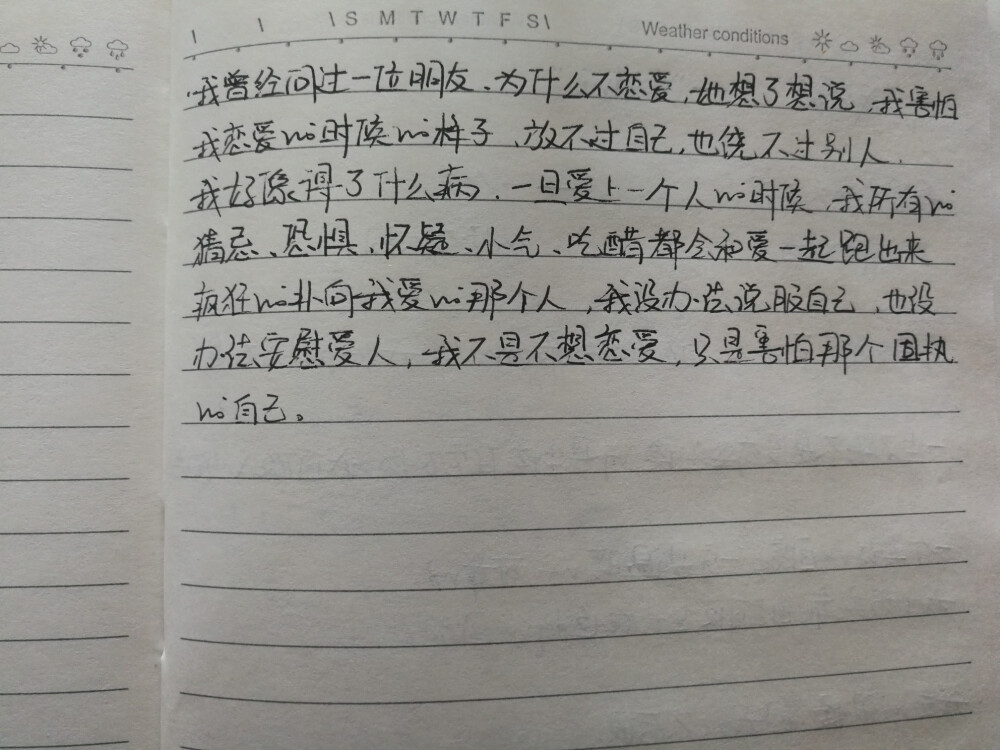 S M T W T F S
Weather conditions
我曾经问过一位朋友、为什么不恋爱,她想了想说,我害怕
我恋爱的时候的样子,放不过自己,也绕不过别人,
我好像得了什么病,一旦爱上一个人的时候,我所有的
猜忌、恐惧、怀疑、小气、吃醋都会和爱一起跑出来
疯狂的扑向我爱的那个人,我没办法说服自己,也没
办法安慰爱人,我不是不想恋爱,只是害怕那个固执
的自己。